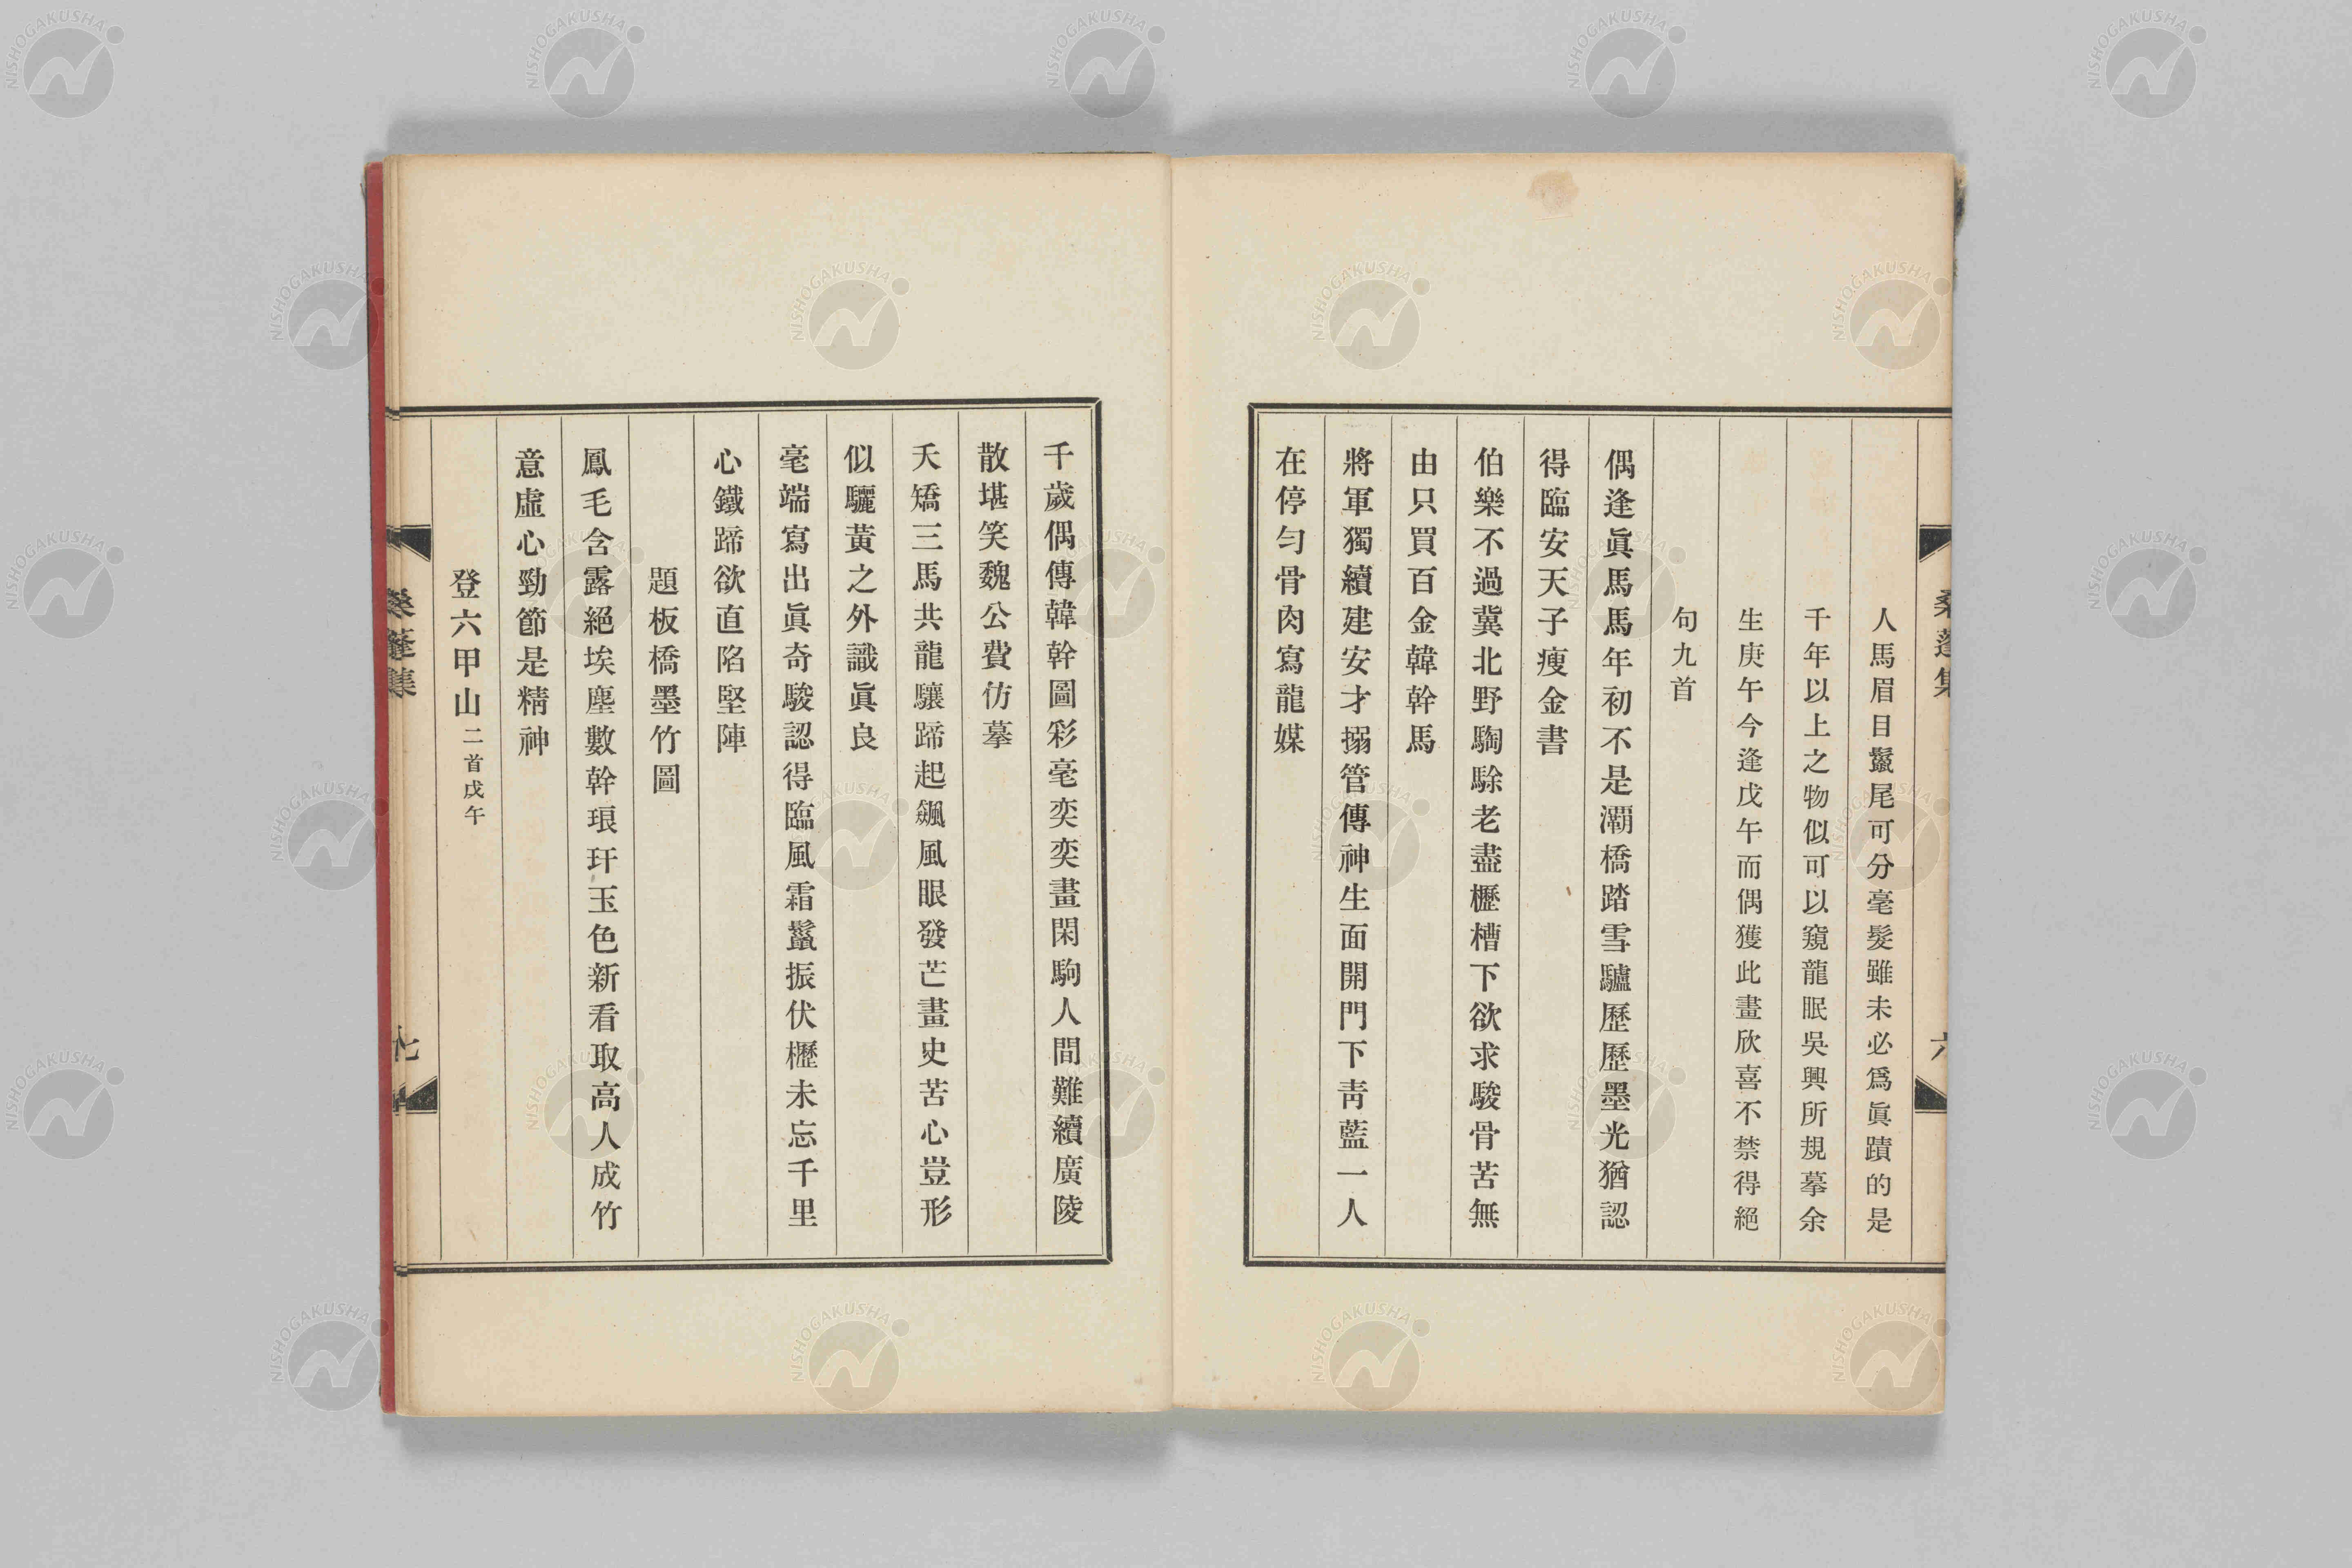 桑蓬集
六
人馬眉目鬣尾可分毫髮雖未必爲眞蹟的是
千年以上之物似可以窺龍眠吳興所規摹余
生庚午今逢戊午而偶獲此畫欣喜不禁得絕
句九首
偶逢眞馬馬年初不是灞橋踏雪驢歷歷墨光猶認
得臨安天子瘦金書
伯樂不過冀北野騊駼老盡櫪槽下欲求駿骨苦無
由只買百金韓幹馬
將軍獨續建安才搦管傳神生面開門下靑藍一人
在停勻骨肉寫龍媒
千歲偶傳韓幹圖彩毫奕奕畫閑駒人間難續廣陵
散堪笑魏公費仿摹
夭矯三馬共龍驤蹄起飆風眼發芒畫史苦心豈形
似驪黃之外識眞良
毫端寫出眞奇駿認得臨風霜鬣振伏櫪未忘千里
心鐵蹄欲直陷堅陣
題板橋墨竹圖
鳳毛含露絕埃塵數幹琅玕玉色新看取高人成竹
意虛心勁節是精神
登六甲山二首戊午
桑蓬集
七
NISHOGAKUSHA